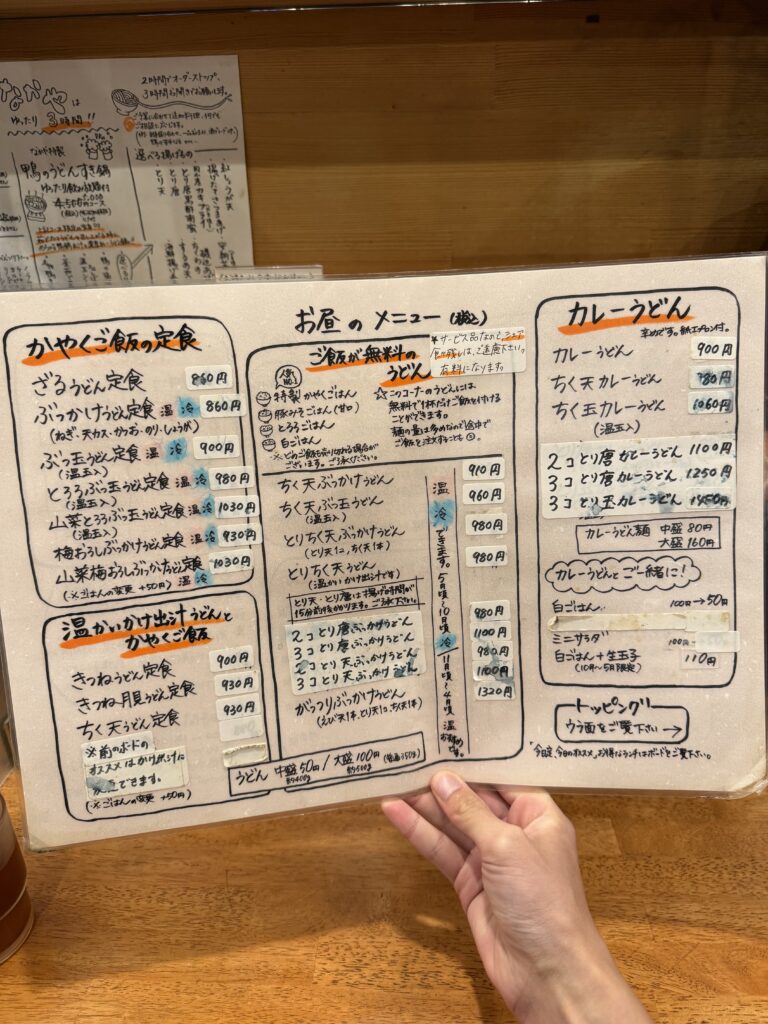 なかや は
ゆったり 3時間!!
2時間でオーダーストップ、
鴨のうどんすき鍋
選べる揚げもの
お昼のメニュー(税込)
かやくご飯の定食
ざるうどん定食 860円
ぶっかけうどん定食 温 冷 860円
(ねぎ・天カス・かつお・のり・しょうが)
ぶっ玉うどん定食 温 冷 900円
(温玉入)
とろろぶっ玉うどん定食 温 冷 980円
(温玉入)
山菜とろろぶっ玉うどん定食 1030円
(温玉入)
梅おろしぶっかけうどん定食 温 冷 930円
山菜梅おろしぶっかけうどん定食 1030円
(※ごはんの変更 +50円) 温 冷
温かいかけ出汁うどんと
かやくご飯
きつねうどん定食 900円
きつね・月見うどん定食 930円
ちく天うどん定食 930円
※前のボードの
オススメはかけ出汁に
変更できます。
(※ごはんの変更 +50円)
ご飯が無料の
うどん
*サービス品なので、シェア
食べ残しは、ご遠慮下さい。
有料になります。
人気NO.1
特製かやくごはん
豚みそごはん(甘口)
とろろごはん
白ごはん
☆このコーナーのうどんには
無料で1杯だけご飯を付ける
ことができます。
麺の量は多めなので途中で
ご飯を注文することも
ちく天ぶっかけうどん 910円
ちく天ぶっ玉うどん 960円
(温玉入)
とりちく天ぶっかけうどん 980円
(とり天1コ、ちく天1本)
とりちく天うどん 980円
(温かいかけ出汁です)
とり天・とり唐は揚げ時間が
15分前後かかります。ご了承下さい。
2コとり唐ぶっかけうどん 980円
3コとり唐ぶっかけうどん 1100円
2コとり天ぶっかけうどん 980円
3コとり天ぶっかけうどん 1100円
がっつりぶっかけうどん 1320円
(えび天1本、とり天1コ、ちく天1本)
温 冷 できます。
5月頃〜10月頃 冷
11月頃〜4月頃 温
うどん 中盛50円/大盛100円
カレーうどん
辛めです。紙エプロン付。
カレーうどん 900円
ちく天カレーうどん 980円
ちく玉カレーうどん 1060円
(温玉入)
2コとり唐カレーうどん 1100円
3コとり唐カレーうどん 1250円
3コとり玉カレーうどん 1450円
カレーうどん麺 中盛80円
大盛160円
カレーうどんとご一緒に!
白ごはん 100円→50円
ミニサラダ
白ごはん+生玉子 110円
(10月〜5月限定)
トッピング!
ウラ面をご覧下さい→
今日定、今日のオススメ、お得なランチはボードをご覧下さい。